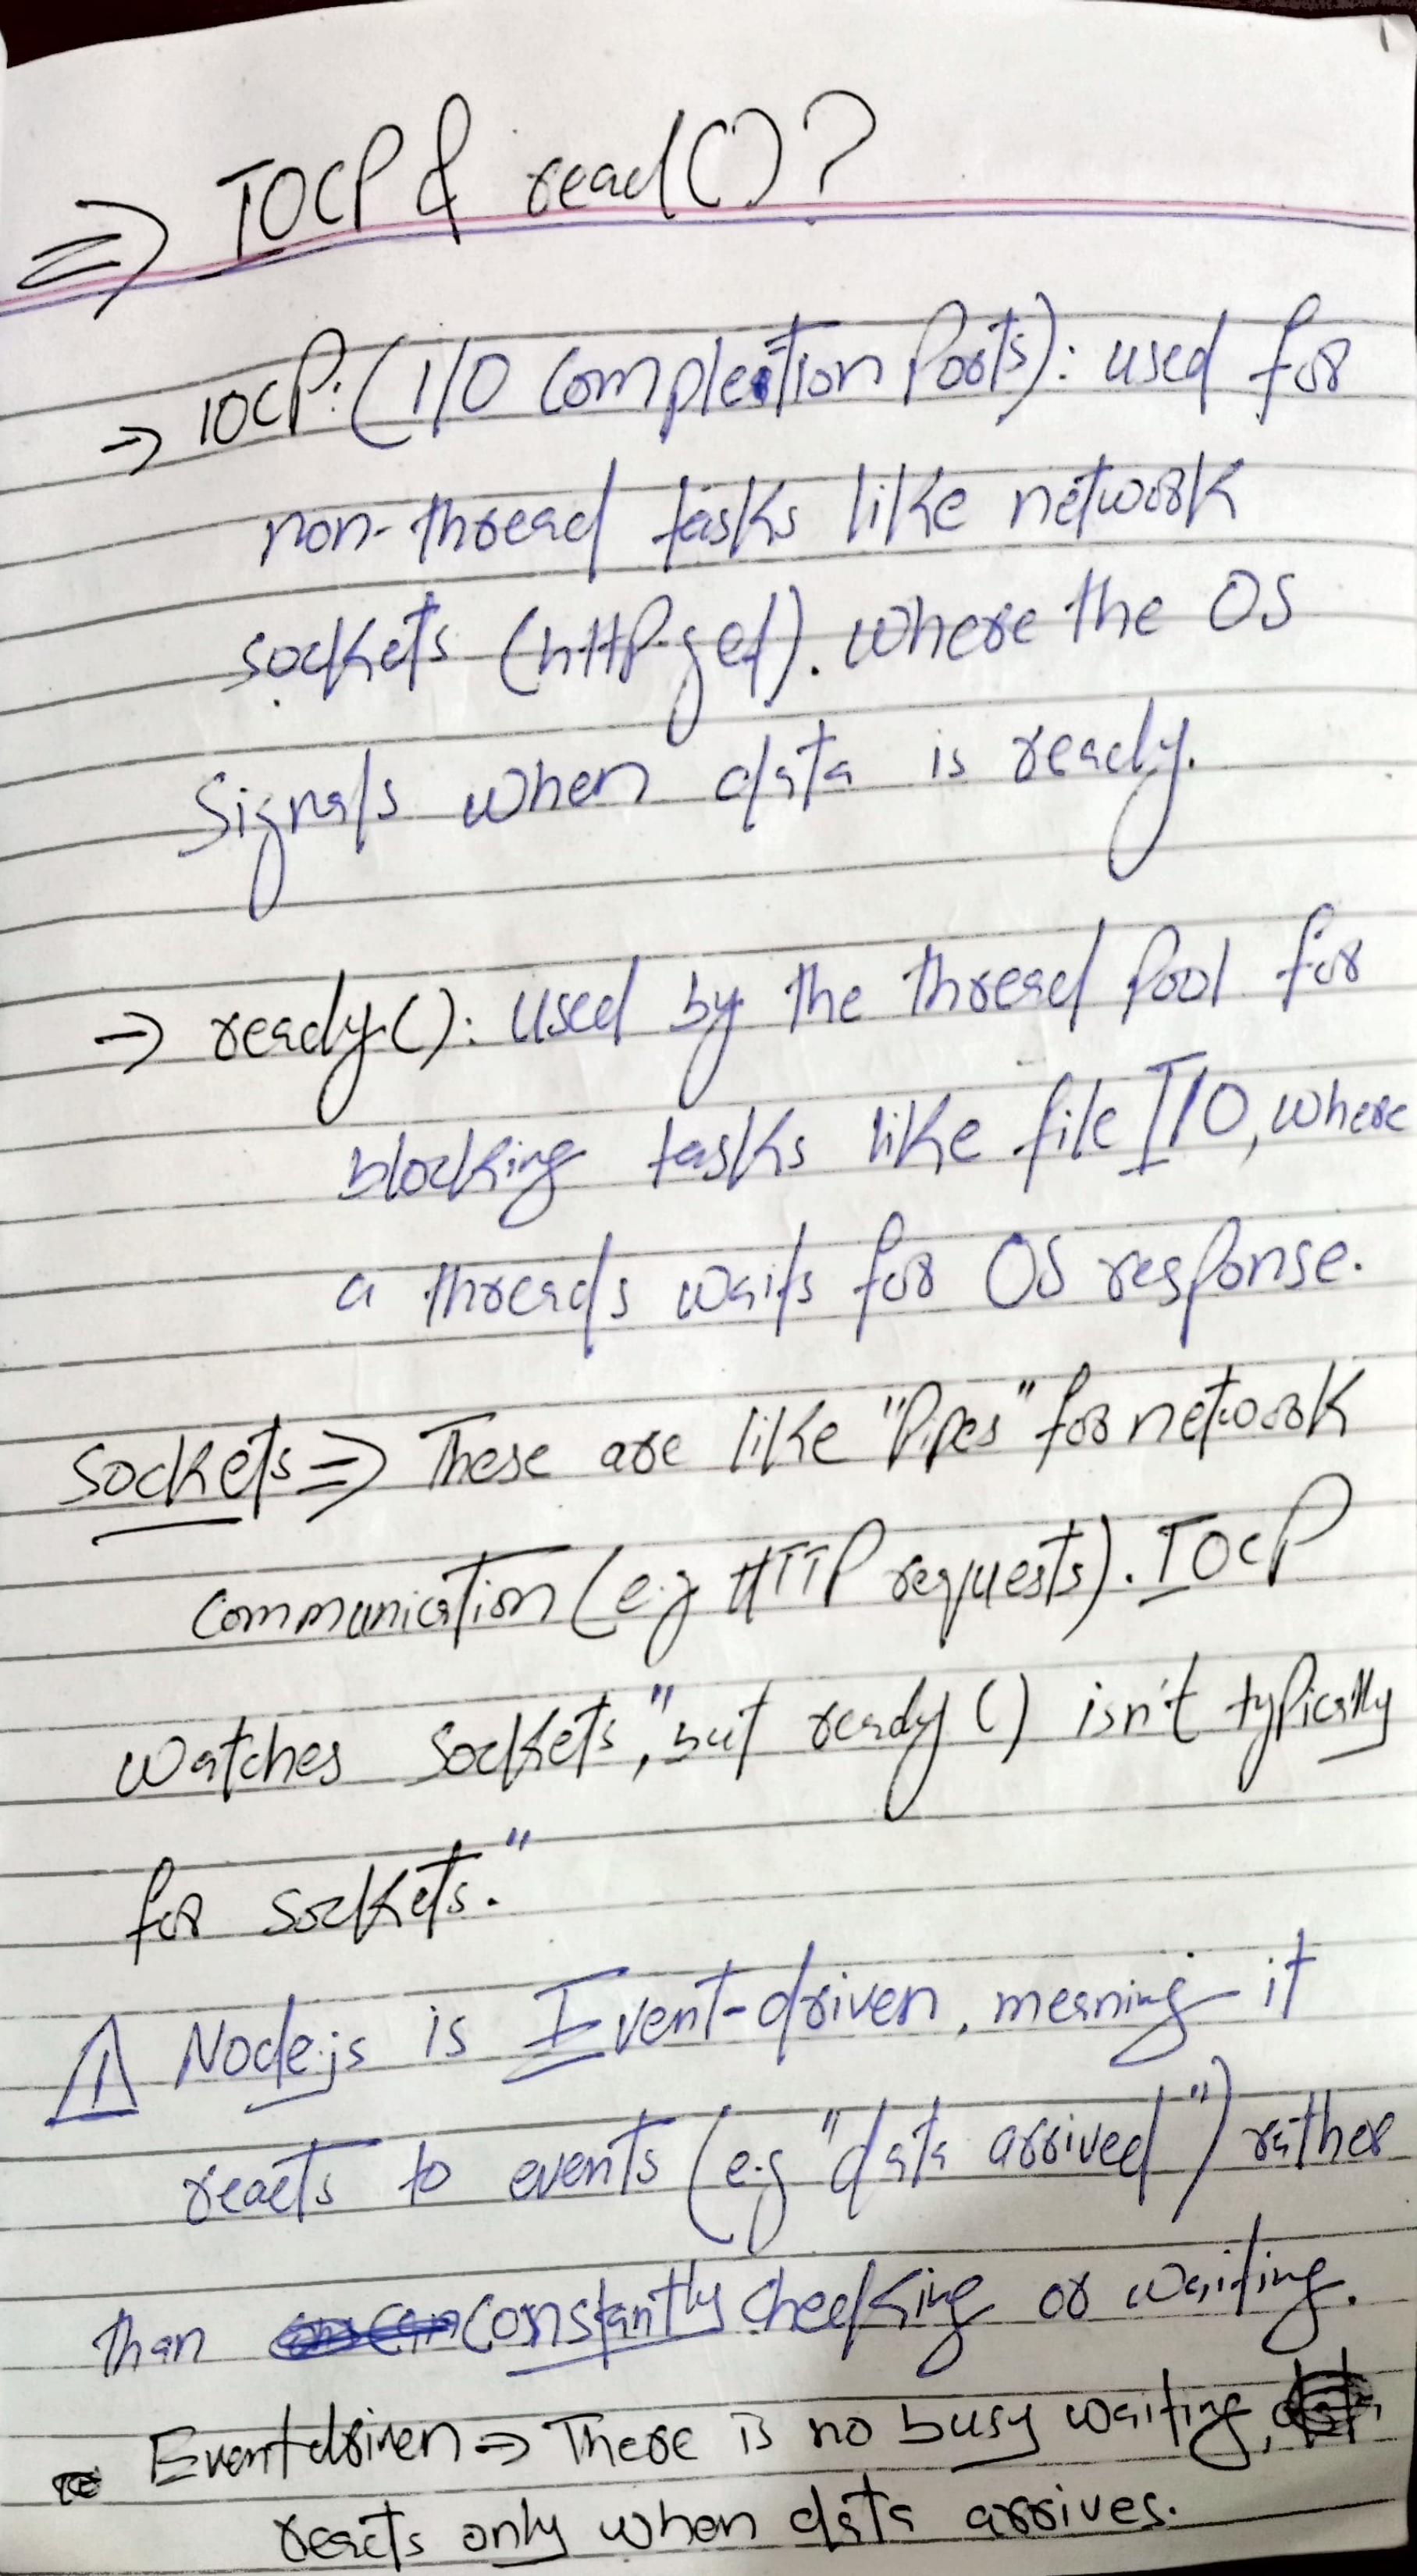 ⇒ IOCP & read()?
→ IOCP: (I/O Completion Ports): used for
non-thread tasks like network
sockets (http.get). where the OS
Signals when data is ready.
→ ready(): used by the thread Pool for
blocking tasks like file I/O, where
a threads waits for OS response.
Sockets ⇒ These are like "Pipes" for network
communication (e.g HTTP requests). IOCP
watches sockets, "but ready() isn't typically
for sockets."
⚠ Node.js is Event-driven, meaning it
reacts to events (e.g "data arrived") rather
than constantly checking or waiting.
Event driven → There is no busy waiting,
reacts only when data arrives.